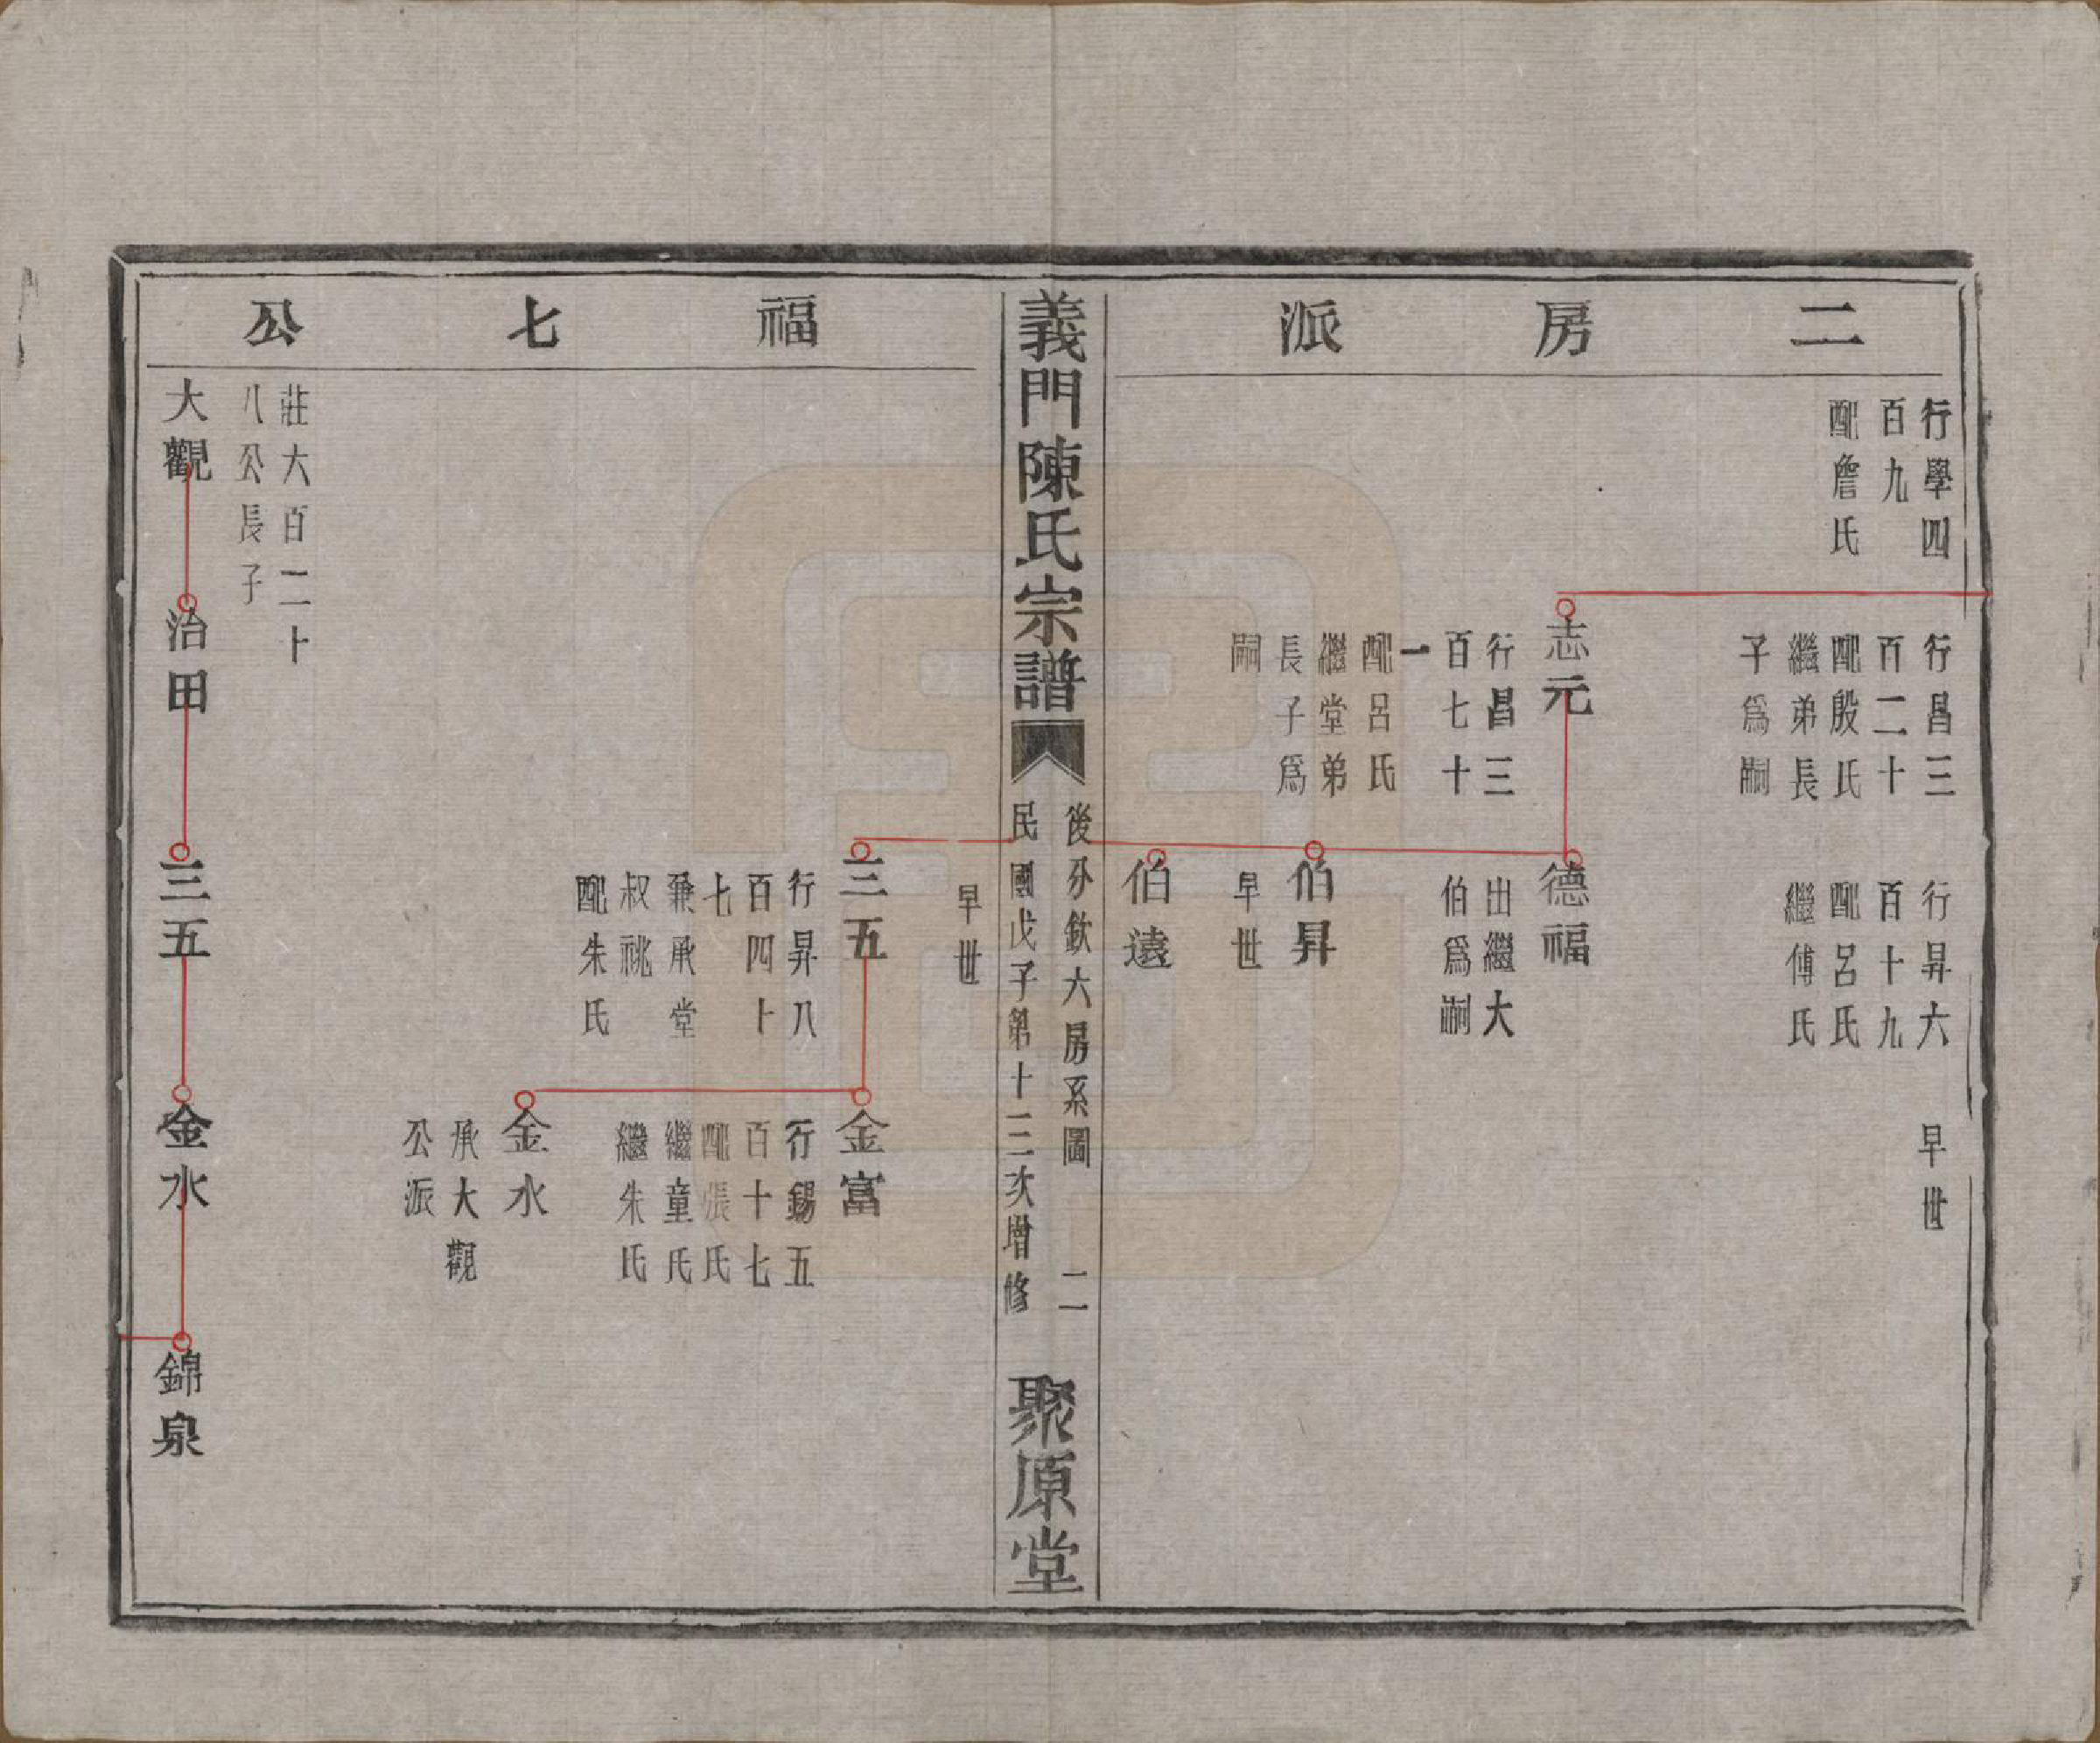 二房派
行學四
百九
配詹氏
行昌三
百二十
配殷氏
繼弟長
子爲嗣
行昇六
百十九
配呂氏
繼傅氏
早世
志元
行昌三
百七十
一
配呂氏
繼堂弟
長子爲
嗣
德福
出繼大
伯爲嗣
伯昇
早世
伯遠
義門陳氏宗譜
後分欽六房系圖
二
民國戊子第十三次增修
聚原堂
福七公
早世
三五
行昇八
百四十
七
兼承堂
叔祧
配朱氏
金富
行錫五
百十七
配張氏
繼童氏
繼朱氏
金水
承大觀
公派
莊大百二十
八公長子
大觀
治田
三五
金水
錦泉